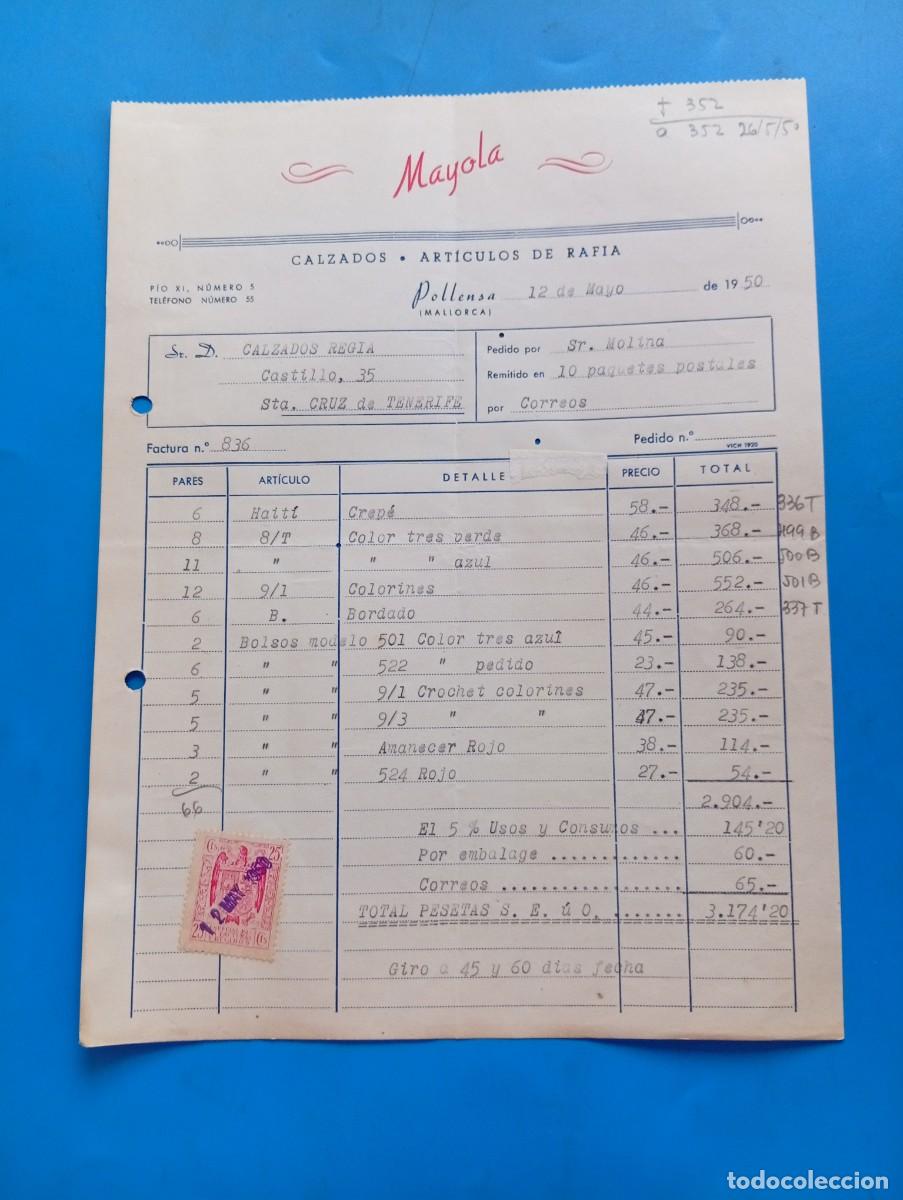 352
a 352 26/5/50
Mayola
CALZADOS • ARTÍCULOS DE RAFIA
PÍO XI, NÚMERO 5
TELÉFONO NÚMERO 55
Pollensa 12 de Mayo de 1950
(MALLORCA)
Sr. D. CALZADOS REGIA
Castillo, 35
Sta. CRUZ de TENERIFE
Pedido por Sr. Molina
Remitido en 10 paquetes postales
por Correos
Factura n.º 836
Pedido n.º
VICH 1920
PARES ARTÍCULO DETALLE PRECIO TOTAL
6 Haití Crepé 58.- 348.- 336 T
8 8/T Color tres verde 46.- 368.- 499 B
11 " " " azul 46.- 506.- 500 B
12 9/1 Colorines 46.- 552.- 501 B
6 B. Bordado 44.- 264.- 337 T
2 Bolsos modelo 501 Color tres azul 45.- 90.-
6 " " 522 " pedido 23.- 138.-
5 " " 9/1 Crochet colorines 47.- 235.-
5 " " 9/3 " " 47.- 235.-
3 " " Amanecer Rojo 38.- 114.-
2 " " 524 Rojo 27.- 54.-
66 2.904.-
El 5 % Usos y Consumos ... 145'20
Por embalage ............ 60.-
Correos ................. 65.-
TOTAL PESETAS S. E. ú O. ....... 3.174'20
Giro a 45 y 60 dias fecha
Cts 25
12 MAY 1950
25 Cts
todocoleccion